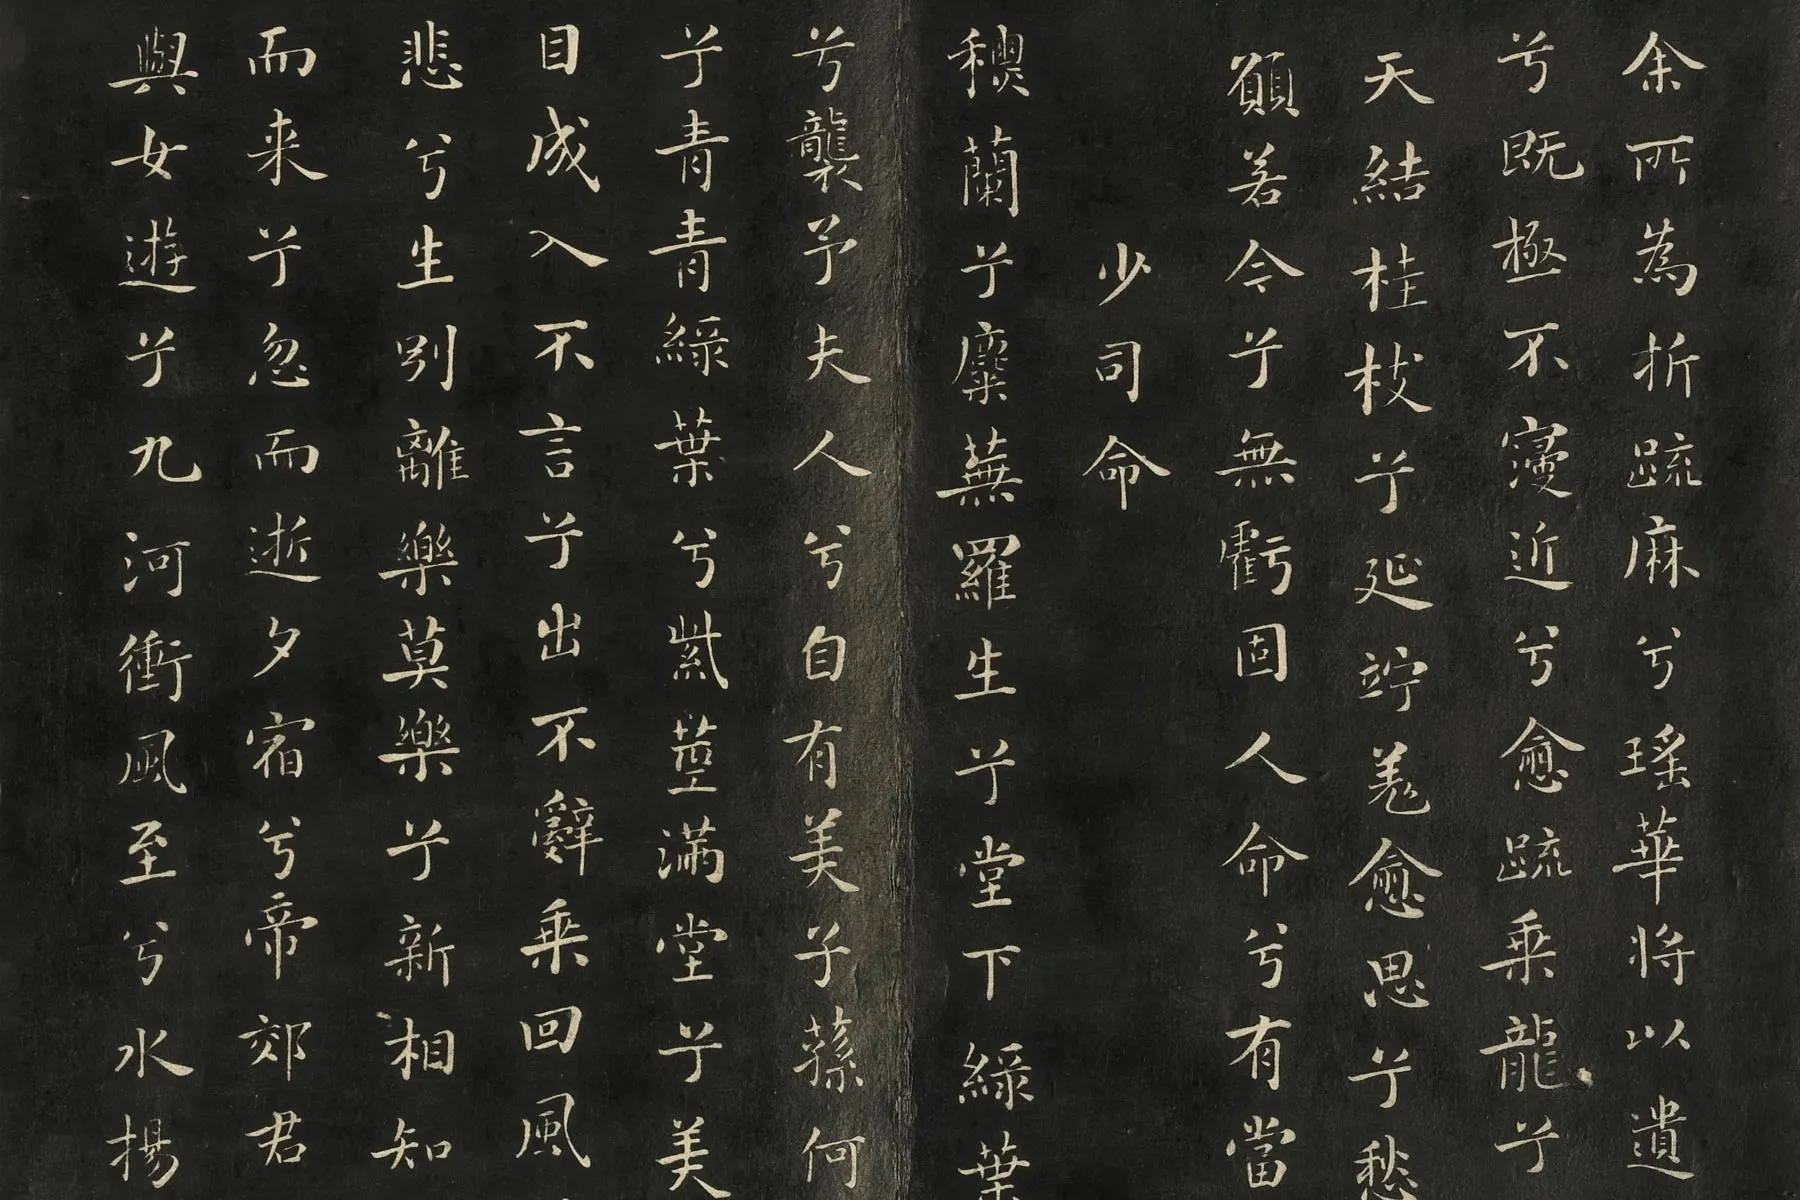 余所為折疏麻兮瑤華將以遺
兮既極不寖近兮愈疏乘龍兮
天結桂枝兮延竚羌愈思兮愁
願若今兮無虧固人命兮有當
少司命
穮蘭兮麋蕪羅生兮堂下綠葉
兮襲予夫人兮自有美子蓀何
兮青青綠葉兮紫莖滿堂兮美
目成入不言兮出不辭乘回風
悲兮生別離樂莫樂兮新相知
而来兮忽而逝夕宿兮帝郊君
與女遊兮九河衝風至兮水揚